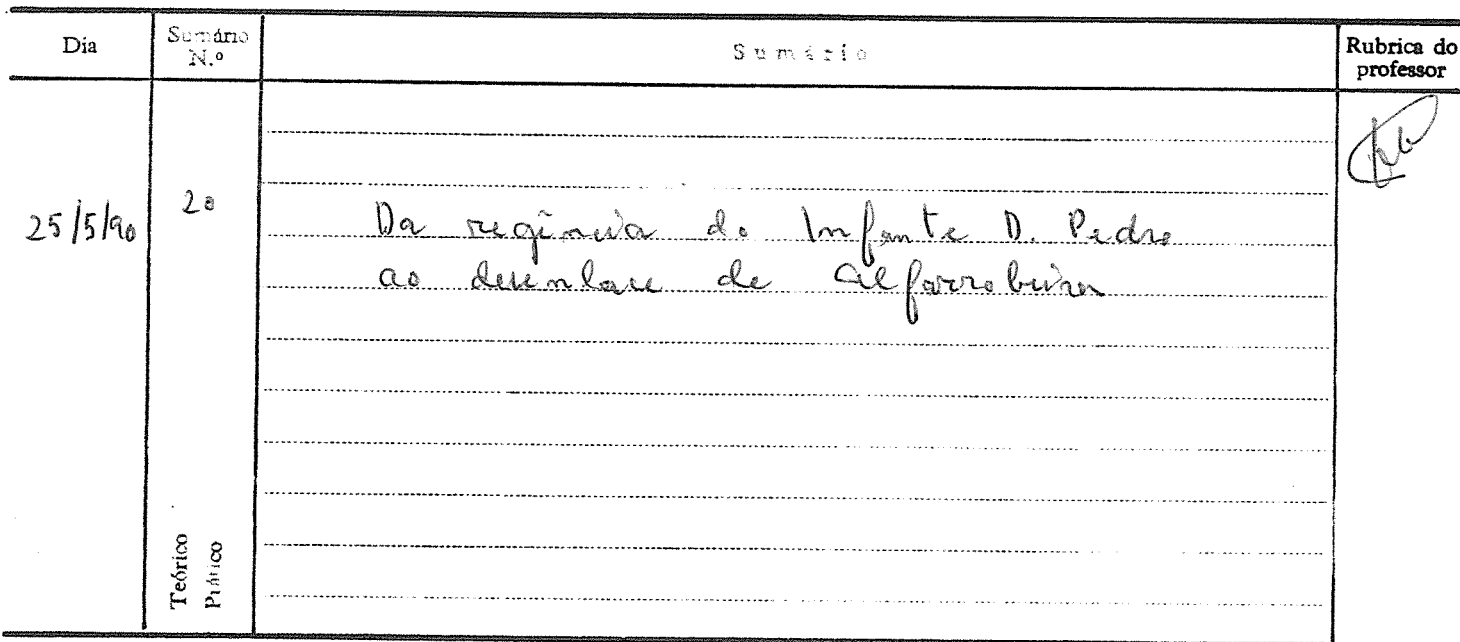 Dia
Sumário
N.º
Sumário
Rubrica do
professor
25/5/90
Da regência do Infante D. Pedro
ao desenlace de Alfarrobeira
Teórico
Prático